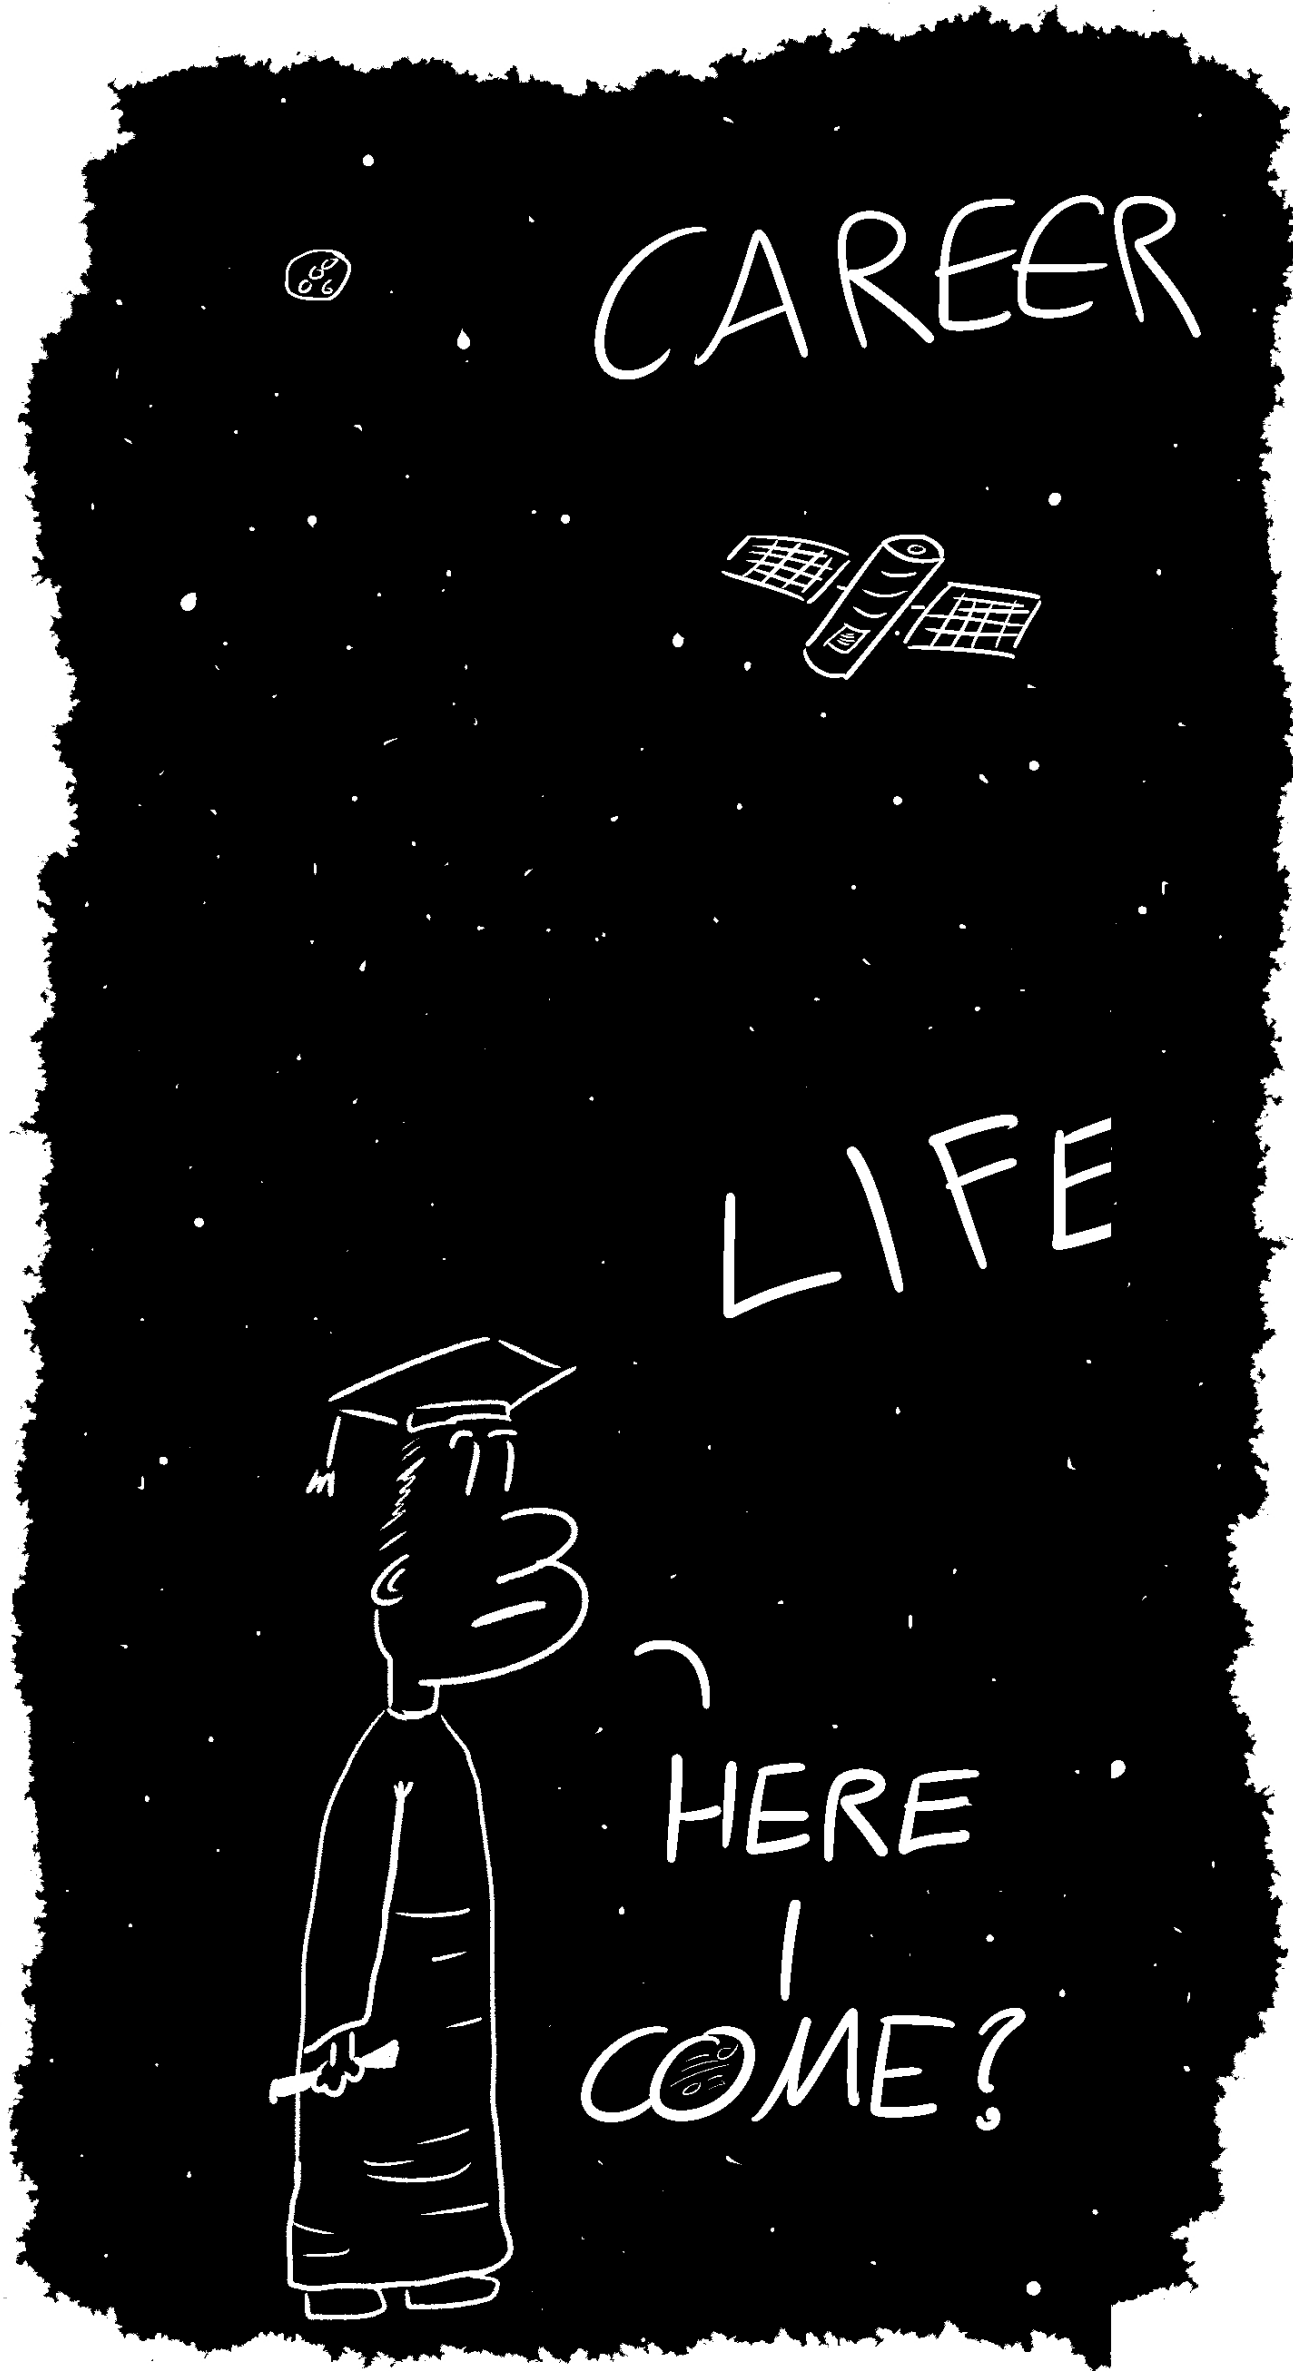 CAREER
LIFE
HERE
I
COME?